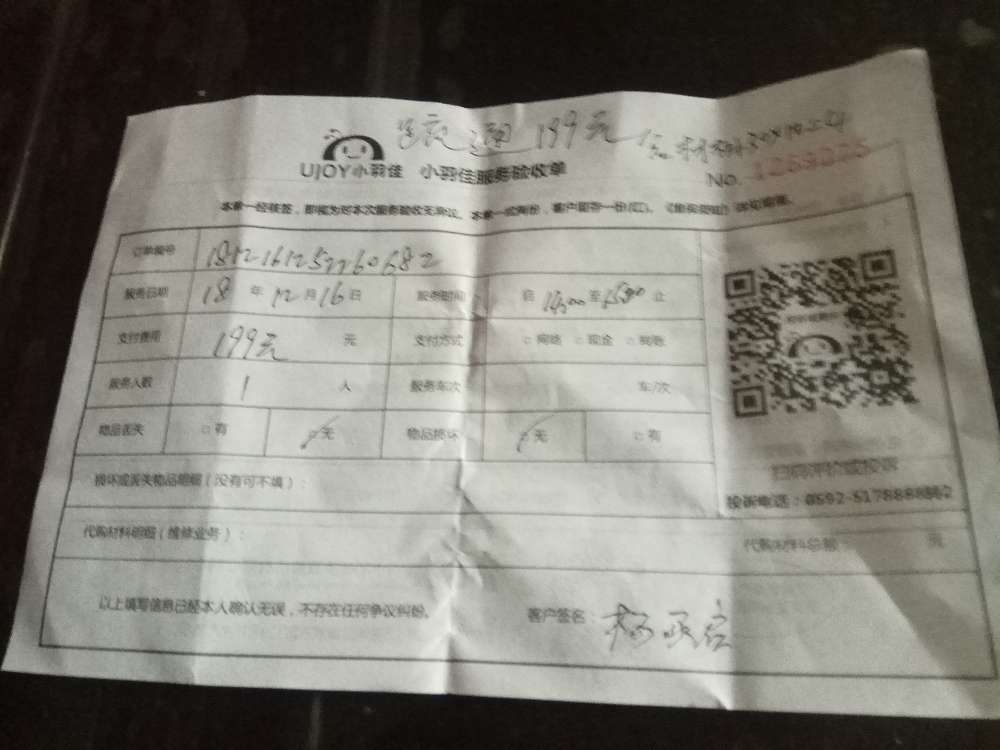 199元
UJOY小羽佳 小羽佳服务验收单
No.
本单一经核签，即视为对本次服务验收无异议。本单一式两份，客户留存一份(红)。
订单编号
服务日期 18 年 12 月 16 日 服务时间 自 14:00 至 15:00 止
支付费用 199元 元 支付方式 □ 网络 □ 现金 □ 挂账
服务人数 1 人 服务车次 车/次
物品丢失 □ 有 □ 无 物品损坏 □ 无 □ 有
扫码评价或投诉
损坏或丢失物品明细（没有可不填）：
投诉电话：0592-5178888
代购材料明细（维修业务）： 代购材料总额 元
以上填写信息已经本人确认无误，不存在任何争议纠纷。 客户签名